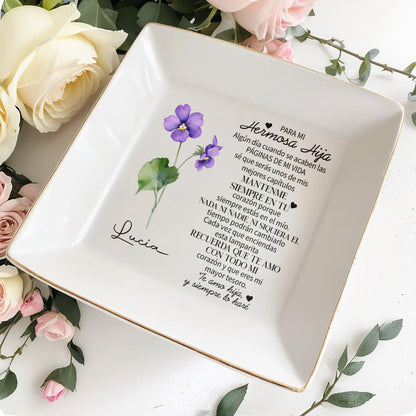 PARA MI
Hermosa Hija
Algún día cuando se acaben las
PÁGINAS DE MI VIDA
sé que serás unos de mis
mejores capítulos
MANTENME
SIEMPRE EN TU
corazón porque
siempre estás en el mío.
NADA NI NADIE, NI SIQUIERA EL
tiempo podrán cambiarlo
Cada vez que enciendas
esta lamparita
RECUERDA QUE TE AMO
CON TODO MI
corazón y que eres mi
mayor tesoro.
Te amo hija,
y siempre lo haré
Lucia